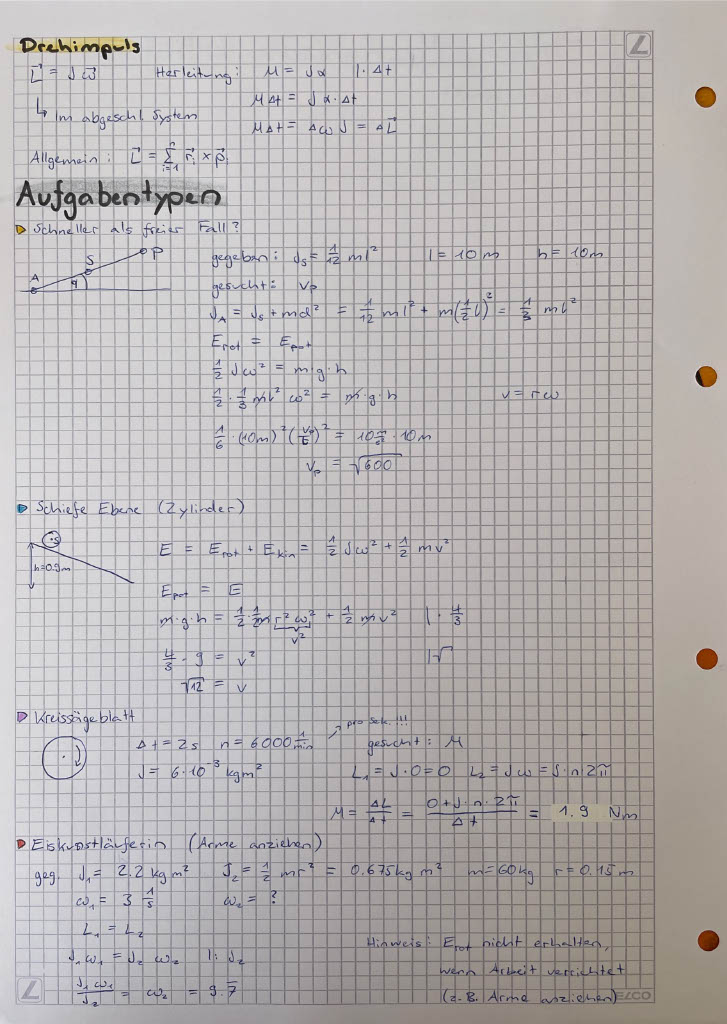 Drehimpuls
L⃗ = J ω⃗ Herleitung: M = J α | · Δt
↳ Im abgeschl. System M Δt = J α · Δt
M Δt = Δω J = ΔL⃗
Allgemein: L⃗ = Σ_{i=1}^{n} r⃗_i × p⃗_i
Aufgabentypen
Schneller als freier Fall?
A S P φ
gegeben: J_S = 1/12 ml² l = 10 m h = 10m
gesucht: v_P
J_A = J_S + md² = 1/12 ml² + m(1/2 l)² = 1/3 ml²
E_rot = E_pot
1/2 Jω² = m·g·h
1/2 · 1/3 ml² ω² = m·g·h v = rω
1/6 · (10m)² (v_P/l)² = 10 m/s² · 10m
v_P = √600
Schiefe Ebene (Zylinder)
S
h=0.9m
E = E_rot + E_kin = 1/2 Jω² + 1/2 mv²
E_pot = E
m·g·h = 1/2 · 1/2 m r² ω² + 1/2 mv² | · 4/3
v²
4/3 · 9 = v² |√
√12 = v
Kreissägeblatt
Δt = 2s n = 6000 1/min → pro Sek. !!! gesucht: M
J = 6·10⁻³ kgm² L₁ = J·0 = 0 L₂ = Jω = J·n·2π
M = ΔL/Δt = (0 + J·n·2π)/Δt = 1.9 Nm
Eiskunstläuferin (Arme anziehen)
geg. J₁ = 2.2 kg m² J₂ = 1/2 mr² = 0.675 kg m² m = 60kg r = 0.15 m
ω₁ = 3 1/s ω₂ = ?
L₁ = L₂
J₁ω₁ = J₂ ω₂ |: J₂
J₁ω₁/J₂ = ω₂ = 9.7̄
Hinweis: E_rot nicht erhalten,
wenn Arbeit verrichtet
(z.B. Arme anziehen)
ELCO